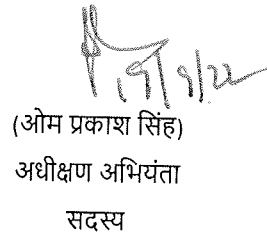 19/9/22
(ओम प्रकाश सिंह)
अधीक्षण अभियंता
सदस्य